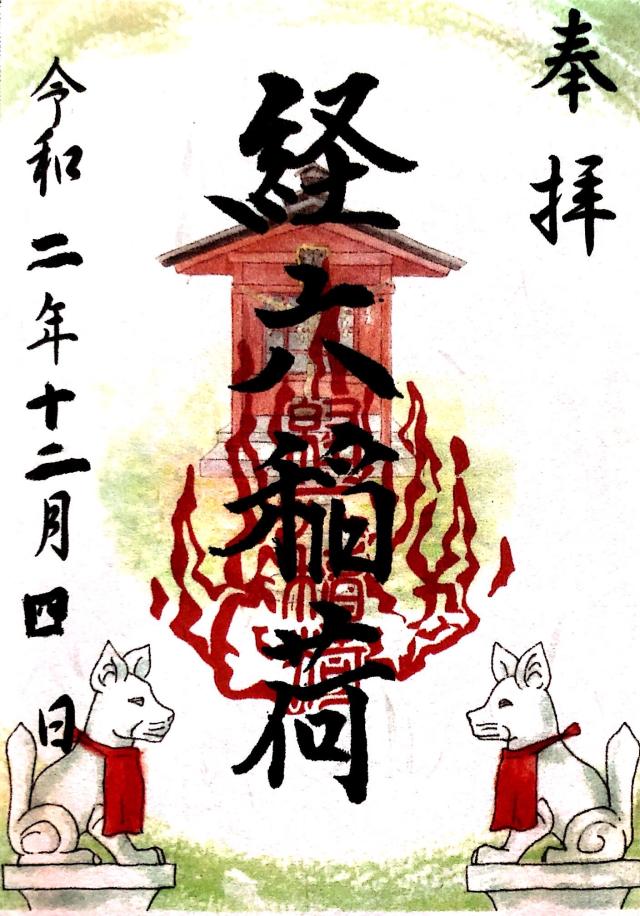 奉拝
経六稲荷
令和二年十二月四日